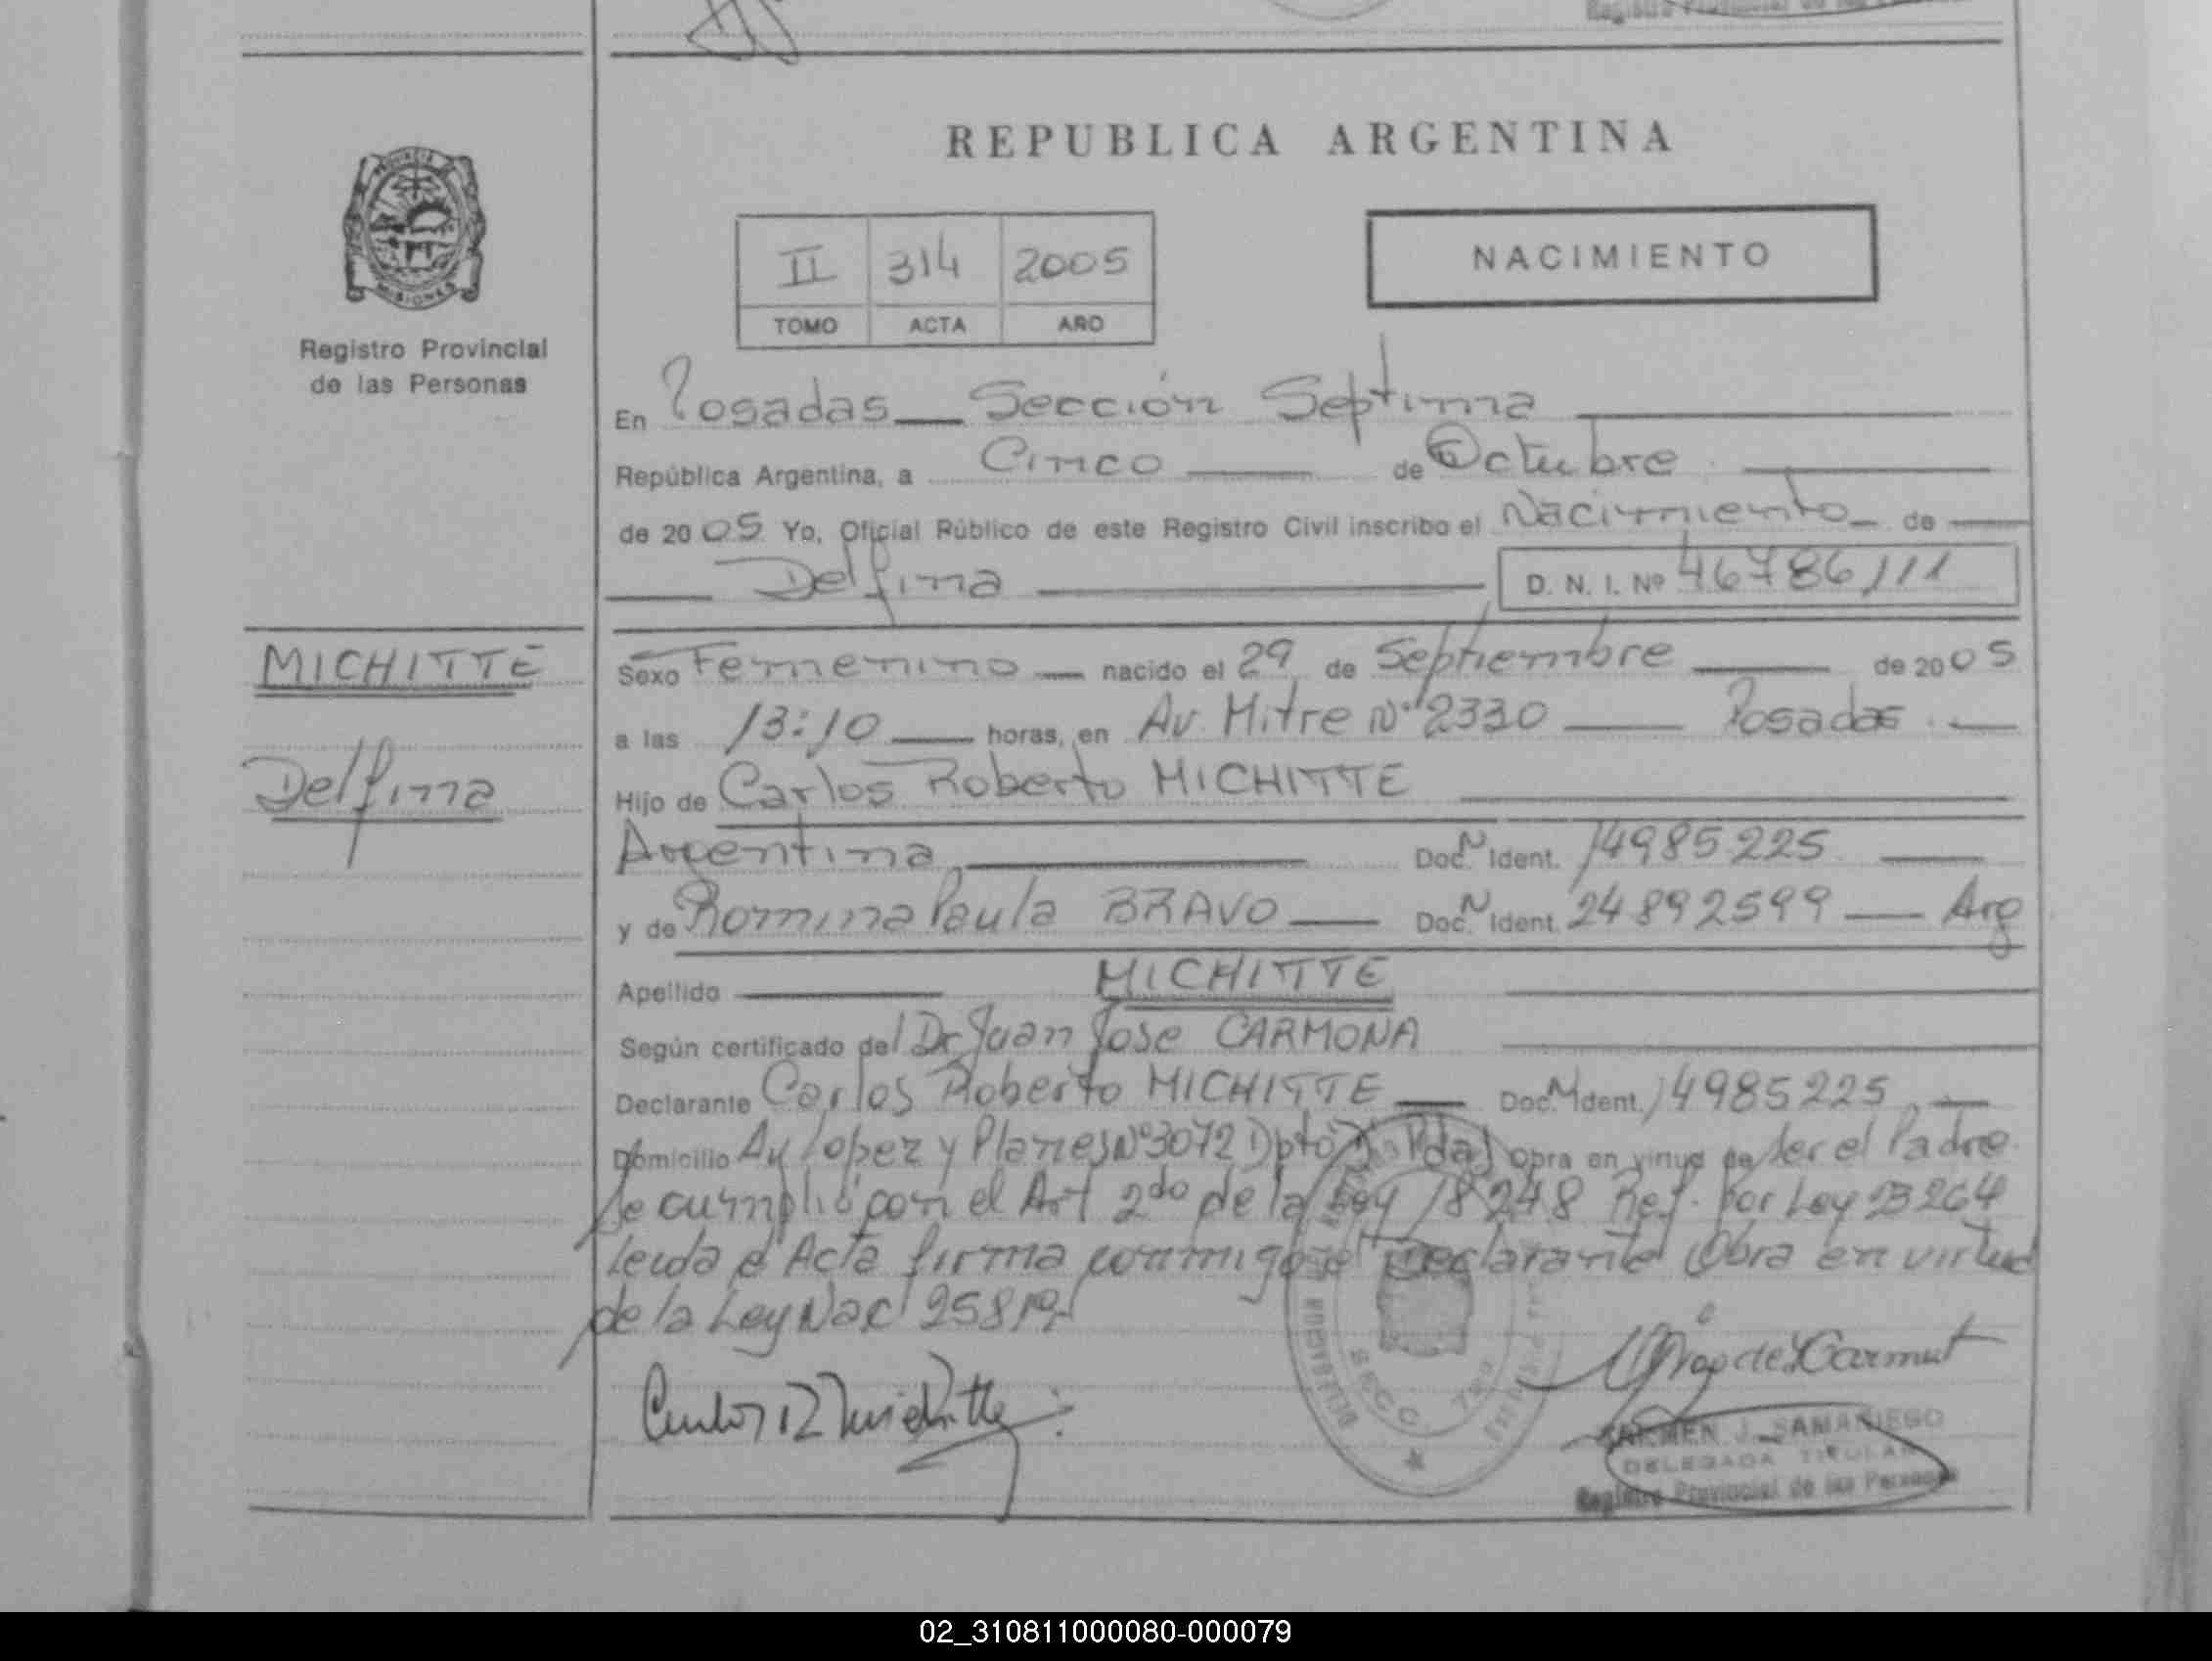 REPUBLICA ARGENTINA
MISIONES
Registro Provincial
de las Personas
II 314 2005
TOMO ACTA AÑO
NACIMIENTO
En Posadas Sección Septima
República Argentina, a Cinco de Octubre
de 2005 Yo, Oficial Público de este Registro Civil inscribo el Nacimiento de
Delfina D. N. I. Nº 46786111
MICHITTE
Delfina
Sexo Femenino nacido el 29 de Septiembre de 2005
a las 13:10 horas, en Av. Mitre Nº 2330 Posadas
Hijo de Carlos Roberto MICHITTE
Argentina Doc. N Ident. 14985225
y de Romina Paula BRAVO Doc. N Ident. 24892599 Arg
Apellido MICHITTE
Según certificado del Dr Juan Jose CARMONA
Declarante Carlos Roberto MICHITTE Doc. N Ident. 14985225
Domicilio Av Lopez y Planes Nº 3072 Dpto Pdas Obra en virtud de ser el Padre
Se cumplió con el Art 2do de la Ley 18248 Ref. Por Ley 23264
leida el Acta firma conmigo el Declarante Obra en virtud
de la Ley Nac 25819
SECC. 7ma
CARMEN J. SAMAÑIEGO
DELEGADA TITULAR
Registro Provincial de las Personas
02_310811000080-000079